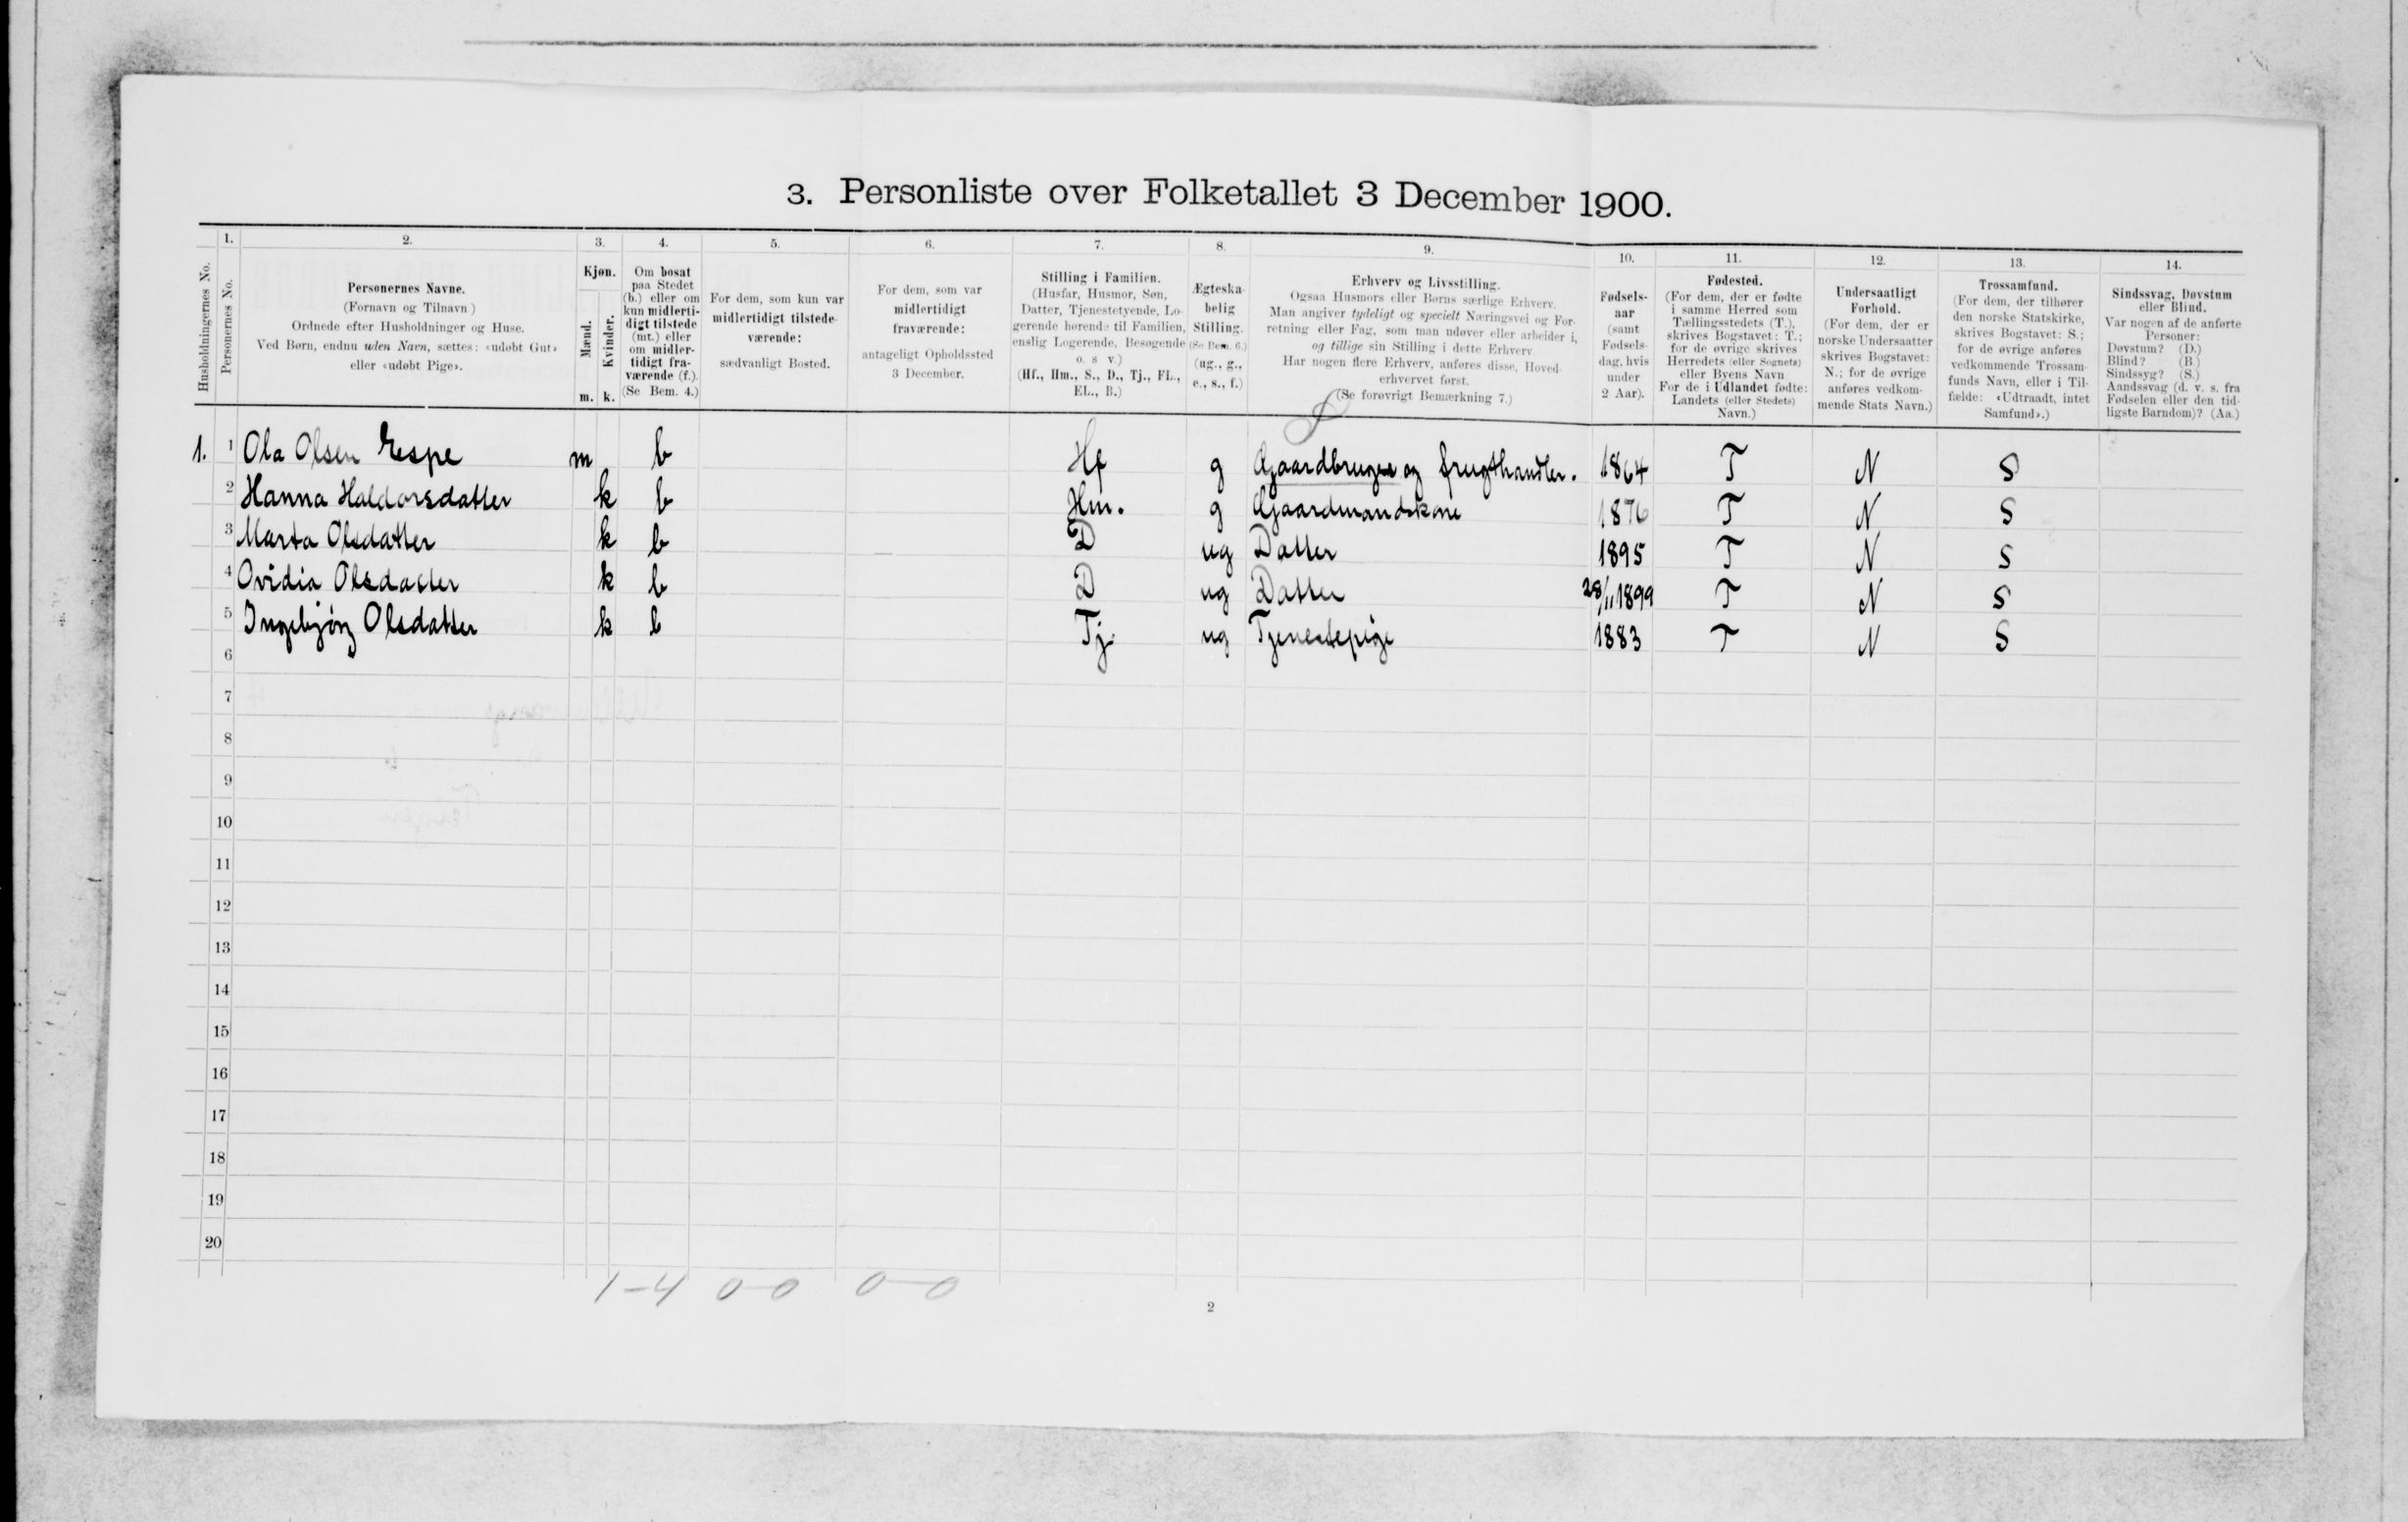 3. Personliste over Folketallet 3 December 1900.
1. 2. 3. 4. 5. 6. 7. 8. 9. 10. 11. 12. 13. 14.
Husholdningernes No.
Personernes No.
Personernes Navne.
(Fornavn og Tilnavn)
Ordnede efter Husholdninger og Huse.
Ved Børn, endnu uden Navn, sættes: «udøbt Gut»
eller «udøbt Pige».
Kjøn.
Mænd.
Kvinder.
m. k.
Om bosat
paa Stedet
(b.) eller om
kun midlerti-
digt tilstede
(mt.) eller
om midler-
tidigt fra-
værende (f.).
(Se Bem. 4.)
For dem, som kun var
midlertidigt tilstede-
værende:
sædvanligt Bosted.
For dem, som var
midlertidigt
fraværende:
antageligt Opholdssted
3 December.
Stilling i Familien.
(Husfar, Husmor, Søn,
Datter, Tjenestetyende, Lo-
gerende hørende til Familien,
enslig Logerende, Besøgende
o. s v.)
(Hf., Hm., S., D., Tj., FL.,
EL., B.)
Ægteska-
belig
Stilling.
(Se Bem. 6.)
(ug., g.,
e., s., f.)
Erhverv og Livsstilling.
Ogsaa Husmors eller Børns særlige Erhverv.
Man angiver tydeligt og specielt Næringsvei og For-
retning eller Fag, som man udøver eller arbeider i,
og tillige sin Stilling i dette Erhverv
Har nogen flere Erhverv, anføres disse, Hoved-
erhvervet først.
(Se forøvrigt Bemærkning 7.)
Fødsels-
aar
(samt
Fødsels-
dag, hvis
under
2 Aar).
Fødested.
(For dem, der er fødte
i samme Herred som
Tællingsstedets (T.),
skrives Bogstavet: T.;
for de øvrige skrives
Herredets (eller Sognets)
eller Byens Navn
For de i Udlandet fødte:
Landets (eller Stedets)
Navn.)
Undersaatligt
Forhold.
(For dem, der er
norske Undersaatter
skrives Bogstavet:
N.; for de øvrige
anføres vedkom-
mende Stats Navn.)
Trossamfund.
(For dem, der tilhører
den norske Statskirke,
skrives Bogstavet: S.;
for de øvrige anføres
vedkommende Trossam-
funds Navn, eller i Til-
fælde: «Udtraadt, intet
Samfund».)
Sindssvag, Døvstum
eller Blind.
Var nogen af de anførte
Personer:
Døvstum? (D.)
Blind? (B)
Sindssyg? (S.)
Aandssvag (d. v. s. fra
Fødselen eller den tid-
ligste Barndom)? (Aa.)
1. 1 Ola Olsen Espe m b Hf g Gaardbruger og frugthandler. 1864 T N S
2 Hanna Haldorsdatter k b Hm. g Gaardmandskone 1876 T N S
3 Marta Olsdatter k b D ug Datter 1895 T N S
4 Ovidia Olsdatter k b D ug Datter 28/11 1899 T N S
5 Ingebjørg Olsdatter k b Tj. ug Tjenestepige 1883 T N S
6
7
8
9
10
11
12
13
14
15
16
17
18
19
20
1-4 0-0 0-0
2